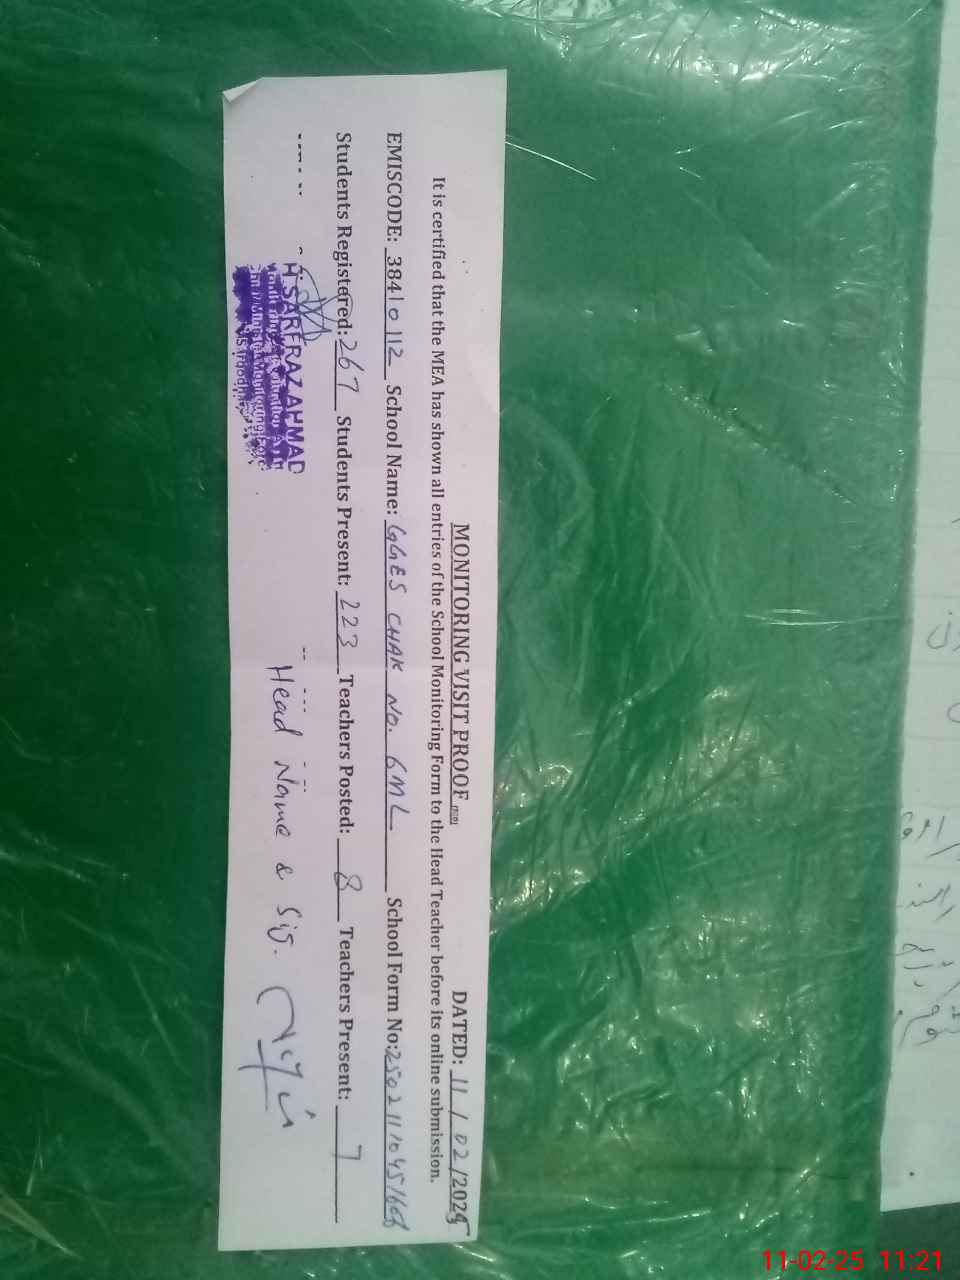 MONITORING VISIT PROOF DATED: 11/02/2025
It is certified that the MEA has shown all entries of the School Monitoring Form to the Head Teacher before its online submission.
EMISCODE: 38410112 School Name: GGES CHAK NO. 6ML School Form No:
Students Registered: 267 Students Present: 223 Teachers Posted: 8 Teachers Present: 7
Head Name & Sig.
H.SARFRAZ AHMAD
11-02-25 11:21